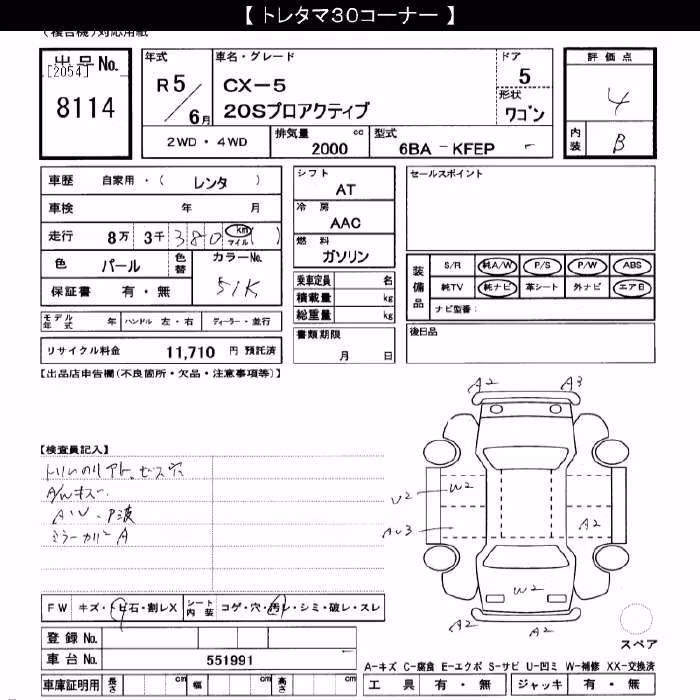 【 トレタマ30コーナー 】
(複合機)対応用紙
出品No.
[2054]
8114
年式
R 5 / 6月
車名・グレード
CX-5
20Sプロアクティブ
ドア
5
形状
ワゴン
評価点
4
内装
B
2WD・4WD
排気量 cc
2000
型式
6BA - KFEP -
車歴 自家用・( レンタ )
車検 年 月
走行 8万 3千 380 km マイル ( )
色 パール
色替
カラーNo.
51K
保証書 有・無
モデル年式 年 ハンドル 左・右 ディーラー・並行
リサイクル料金 11,710 円 預託済
シフト
AT
冷房
AAC
燃料
ガソリン
乗車定員 名
積載量 kg
総重量 kg
書類期限
月 日
セールスポイント
装備品
S/R 純A/W P/S P/W ABS
純TV 純ナビ 革シート 外ナビ エアB
ナビ型番:
後日品
【出品店申告欄(不良箇所・欠品・注意事項等)】
【検査員記入】
トリムのリアト、ビス穴
A/Wキズ
AU、P波
ミラーカバーA
A2
A3
U2
W2
AU3
A2
W2
A2
A2
スペア
FW キズ・トビ石・割レX
シート内装 コゲ・穴・汚レ・シミ・破レ・スレ
登録No.
車台No. 551991
車庫証明用 長さ cm 幅 cm 高さ cm
A-キズ C-腐食 E-エクボ S-サビ U-凹ミ W-補修 XX-交換済
工具 有・無 ジャッキ 有・無